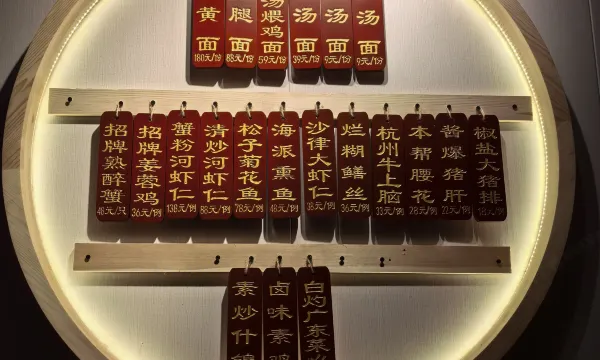 黄面
180元/份
腿面
88元/份
汤煨鸡面
59元/份
汤面
39元/份
汤面
9元/份
汤面
9元/份
招牌熟醉蟹
48元/只
招牌姜蓉鸡
36元/例
蟹粉河虾仁
138元/例
清炒河虾仁
88元/例
松子菊花鱼
78元/例
海派熏鱼
48元/例
沙律大虾仁
38元/例
烂糊鳝丝
36元/例
杭州牛上脑
33元/例
本帮腰花
28元/例
酱爆猪肝
22元/例
椒盐大猪排
18元/例
素炒什锦
卤味素鸡
白灼广东菜心